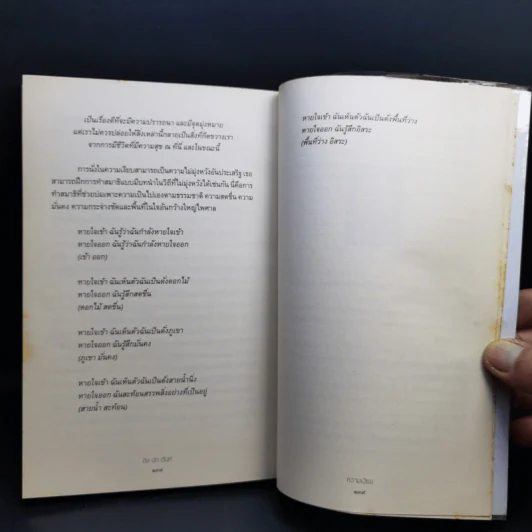 เป็นเรื่องดีที่จะมีความปรารถนา และมีจุดมุ่งหมาย
แต่เราไม่ควรปล่อยให้สิ่งเหล่านี้กลายเป็นสิ่งที่กีดขวางเรา
จากการมีชีวิตที่มีความสุข ณ ที่นี่ และในขณะนี้
การนั่งในความเงียบสามารถเป็นความไม่มุ่งหวังอันประเสริฐ เธอ
สามารถฝึกการทำสมาธิแบบมีบทนำในวิถีที่ไม่มุ่งหวังได้เช่นกัน นี่คือการ
ทำสมาธิที่ช่วยบ่มเพาะความเป็นไปเองตามธรรมชาติ ความสดชื่น ความ
มั่นคง ความกระจ่างชัดและพื้นที่ในใจอันกว้างใหญ่ไพศาล
หายใจเข้า ฉันรู้ว่าฉันกำลังหายใจเข้า
หายใจออก ฉันรู้ว่าฉันกำลังหายใจออก
(เข้า ออก)
หายใจเข้า ฉันเห็นตัวฉันเป็นดั่งดอกไม้
หายใจออก ฉันรู้สึกสดชื่น
(ดอกไม้ สดชื่น)
หายใจเข้า ฉันเห็นตัวฉันเป็นดั่งภูเขา
หายใจออก ฉันรู้สึกมั่นคง
(ภูเขา มั่นคง)
หายใจเข้า ฉันเห็นตัวฉันเป็นดั่งสายน้ำนิ่ง
หายใจออก ฉันสะท้อนสรรพสิ่งอย่างที่เป็นอยู่
(สายน้ำ สะท้อน)
ติช นัท ฮันห์
หายใจเข้า ฉันเห็นตัวฉันเป็นดั่งพื้นที่ว่าง
หายใจออก ฉันรู้สึกอิสระ
(พื้นที่ว่าง อิสระ)
ความเงียบ